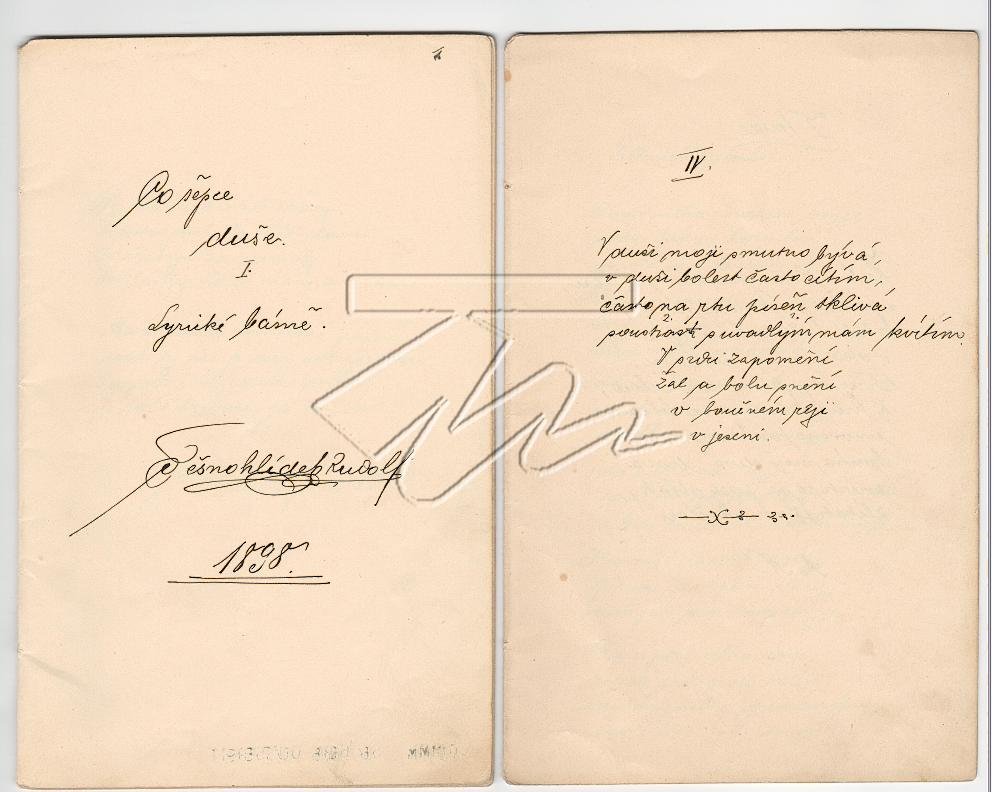 Co šepce
duše.
I.
Lyrické básně.
Těšnohlídek Rudolf
1898.
IV.
V duši mojí smutno bývá,
v duši bolest často cítím,
často na rtu píseň tklivá
s uvadlým mám kvítím.
V srdci zapomění
žal a bolu snění
v bouřném reji
v jeseni.